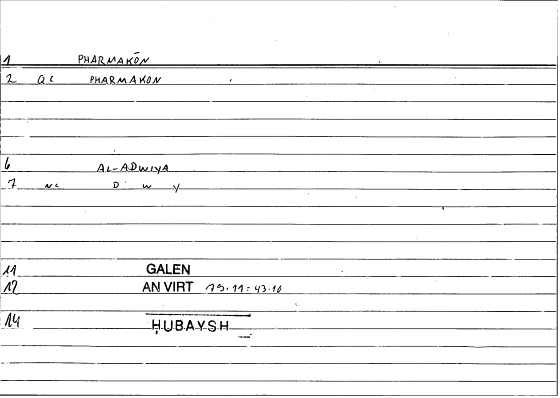 1 PHARMAKŌN
2 QL PHARMAKON
6 AL-ADWIYA
7 NL D W Y
11 GALEN
12 AN VIRT 79.11:43.10
14 ḤUBAYSH